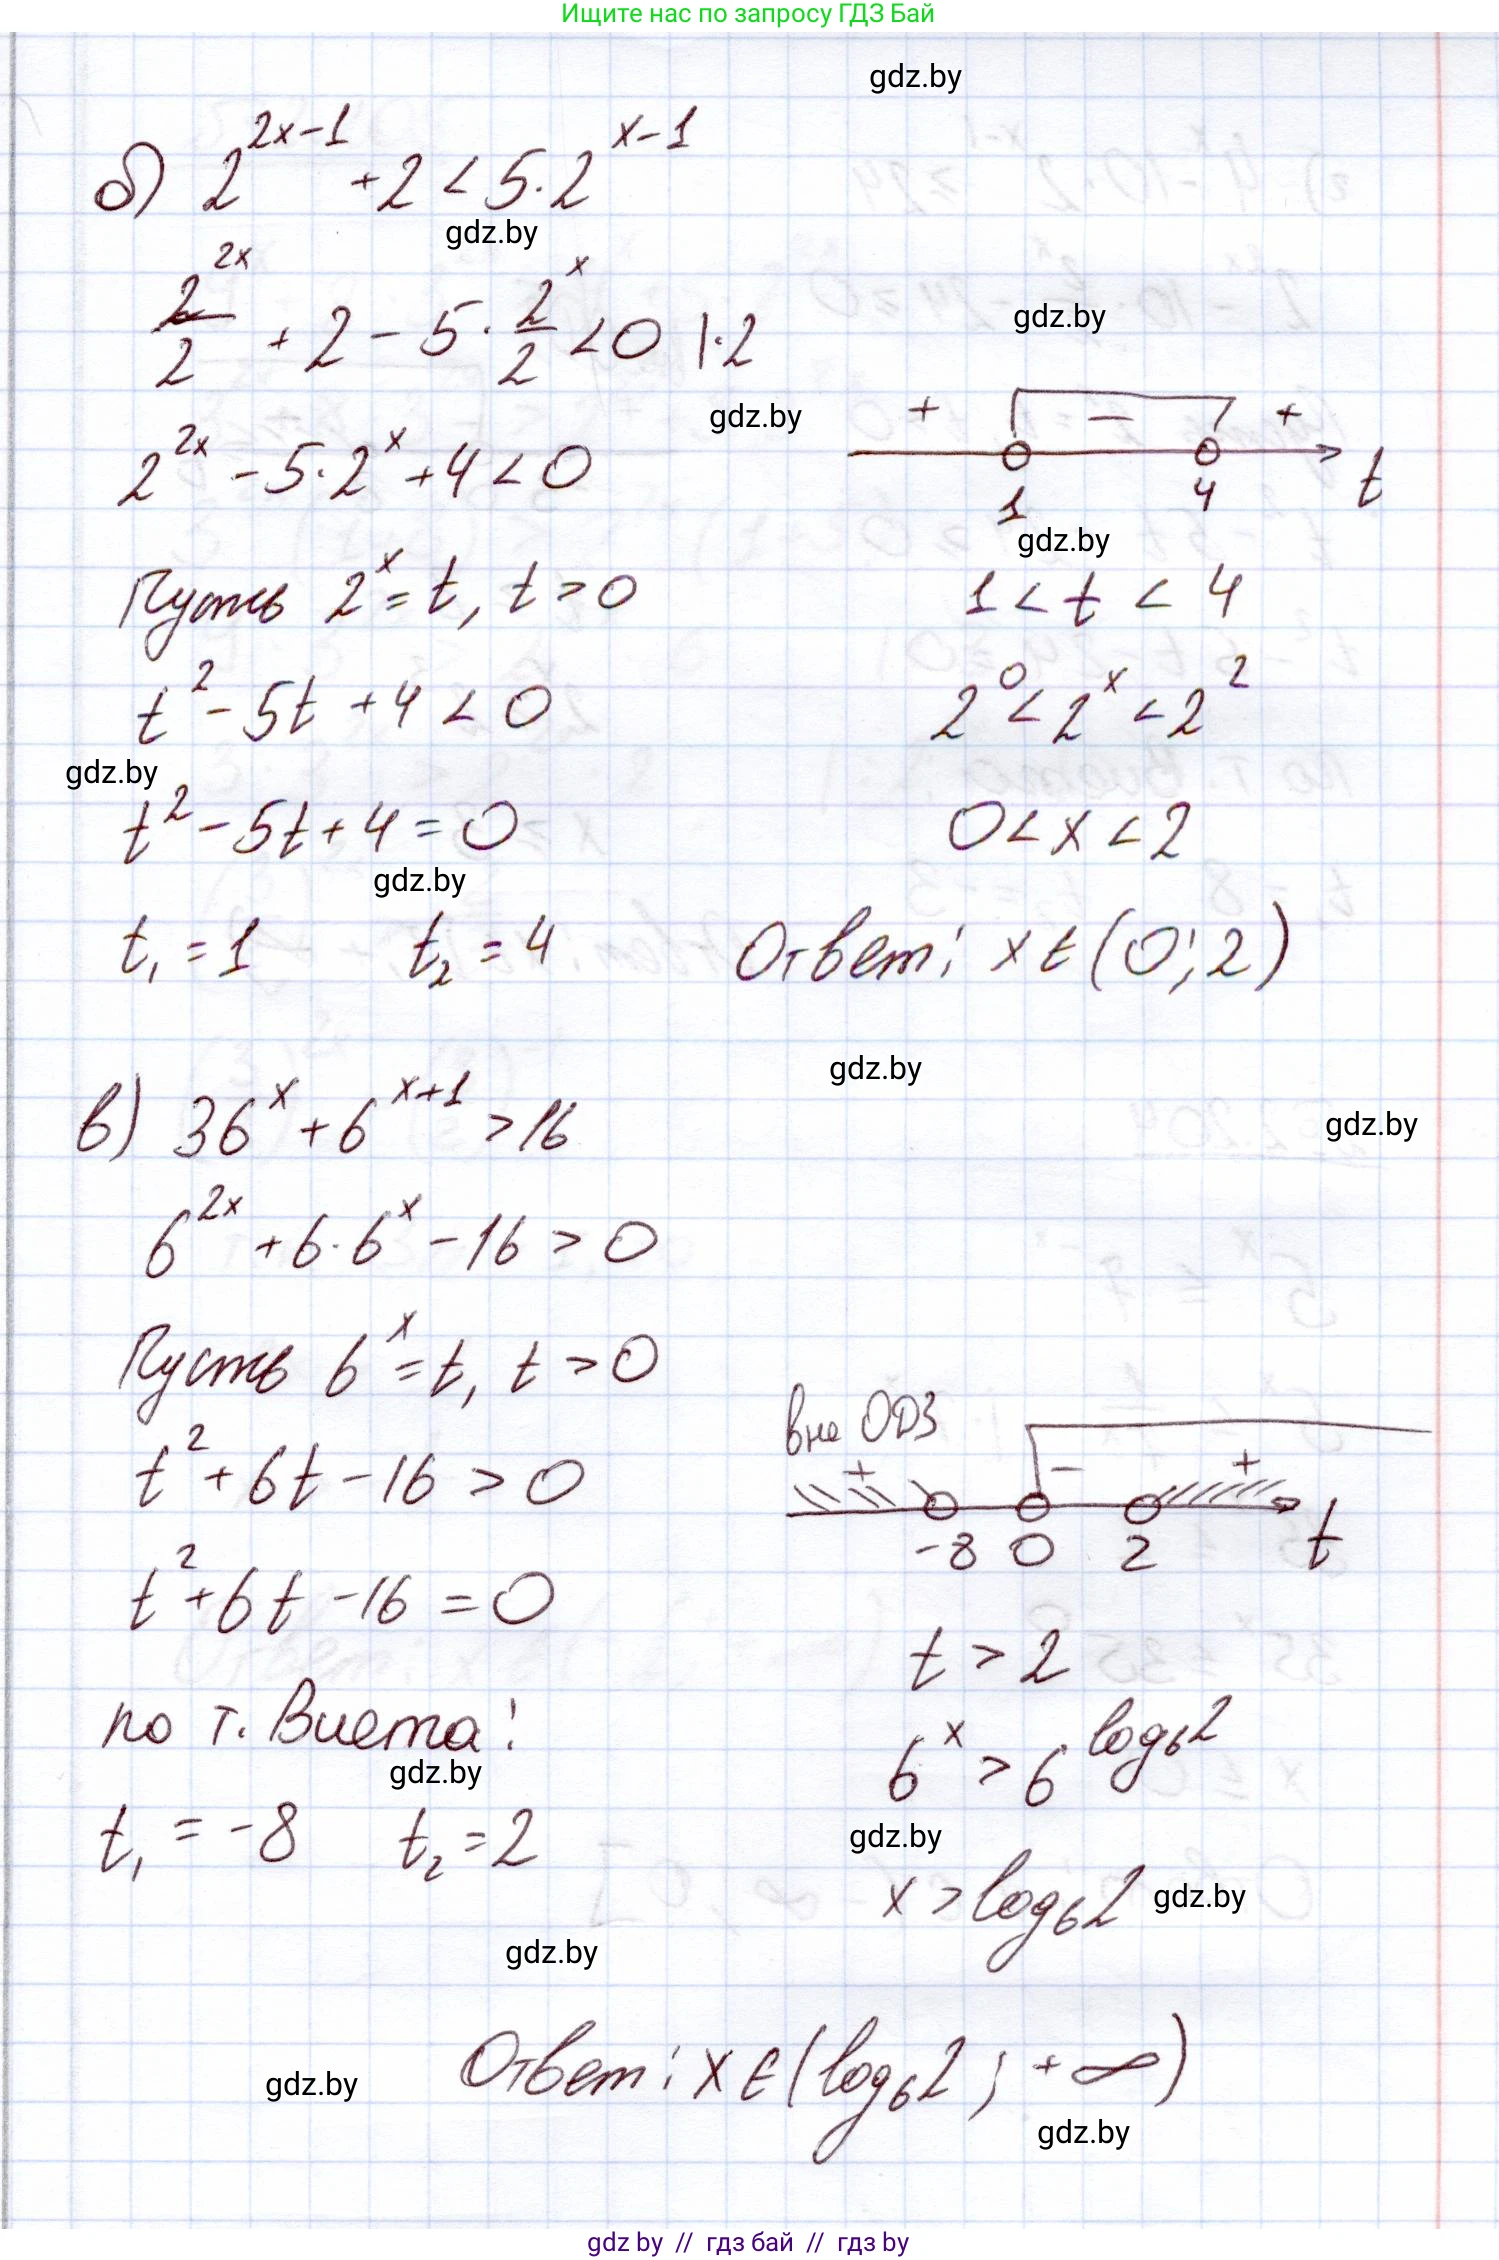 Ищите нас по запросу ГДЗ Бай
gdz.by
б) 2^(2x-1) + 2 < 5·2^(x-1)
gdz.by
2^(2x)/2 + 2 - 5·2^x/2 < 0 |·2
gdz.by
gdz.by
+ - +
1 4 t
2^(2x) - 5·2^x + 4 < 0
gdz.by
Пусть 2^x = t, t > 0
1 < t < 4
t² - 5t + 4 < 0
2^0 < 2^x < 2^2
gdz.by
t² - 5t + 4 = 0
0 < x < 2
gdz.by
t₁ = 1 t₂ = 4
Ответ: x ∈ (0; 2)
gdz.by
gdz.by
в) 36^x + 6^(x+1) > 16
6^(2x) + 6·6^x - 16 > 0
Пусть 6^x = t, t > 0
вне ОДЗ
+ - +
-8 0 2 t
t² + 6t - 16 > 0
t² + 6t - 16 = 0
t > 2
по т. Виета:
6^x > 6^(log₆2)
gdz.by
t₁ = -8 t₂ = 2
gdz.by
x > log₆2
gdz.by
gdz.by
Ответ: x ∈ (log₆2; +∞)
gdz.by
gdz.by
gdz by // гдз бай // гдз by